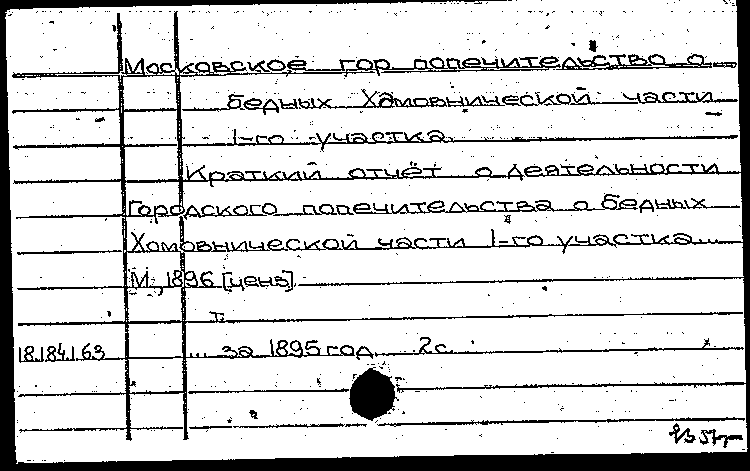 Московское гор. попечительство о
бедных Хамовнической части
1-го участка.
Краткий отчёт о деятельности
Городского попечительства о бедных
Хамовнической части 1-го участка...
М., 1896 [ценз]
Т.
18.184.1.63 ... за 1895 год 2 с.